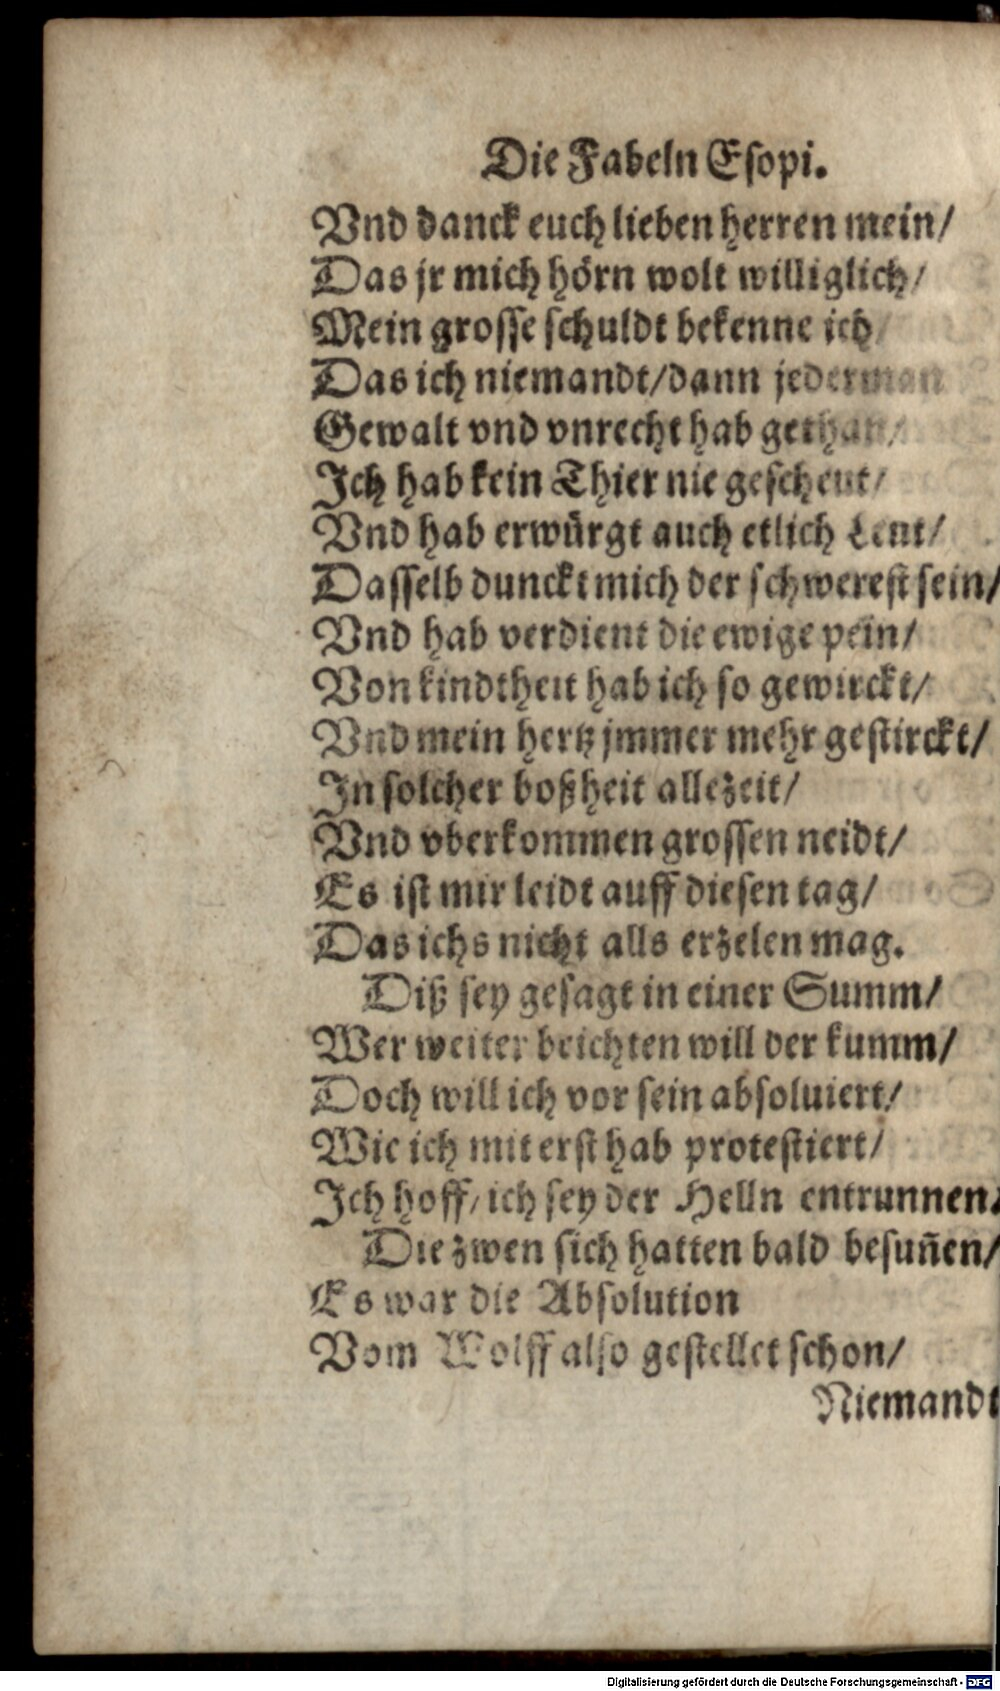 Die Fabeln Esopi.
Vnd danck euch lieben herren mein/
Das jr mich hörn wolt williglich/
Mein grosse schuldt bekenne ich/
Das ich niemandt/dann jederman
Gewalt vnd vnrecht hab gethan/
Ich hab kein Thier nie gescheut/
Vnd hab erwürgt auch etlich Leut/
Dasselb dunckt mich der schwerest sein/
Vnd hab verdient die ewige pein/
Von kindtheit hab ich so gewirckt/
Vnd mein hertz jmmer mehr gestirckt/
In solcher boßheit allezeit/
Vnd vberkommen grossen neidt/
Es ist mir leidt auff diesen tag/
Das ichs nicht alls erzelen mag.
Diß sey gesagt in einer Summ/
Wer weiter beichten will der kumm/
Doch will ich vor sein absoluiert/
Wie ich mit erst hab protestiert/
Ich hoff/ich sey der Helln entrunnen/
Die zwen sich hatten bald besuñen/
Es war die Absolution
Vom Wolff also gestellet schon/
Niemandt
Digitalisierung gefördert durch die Deutsche Forschungsgemeinschaft - DFG